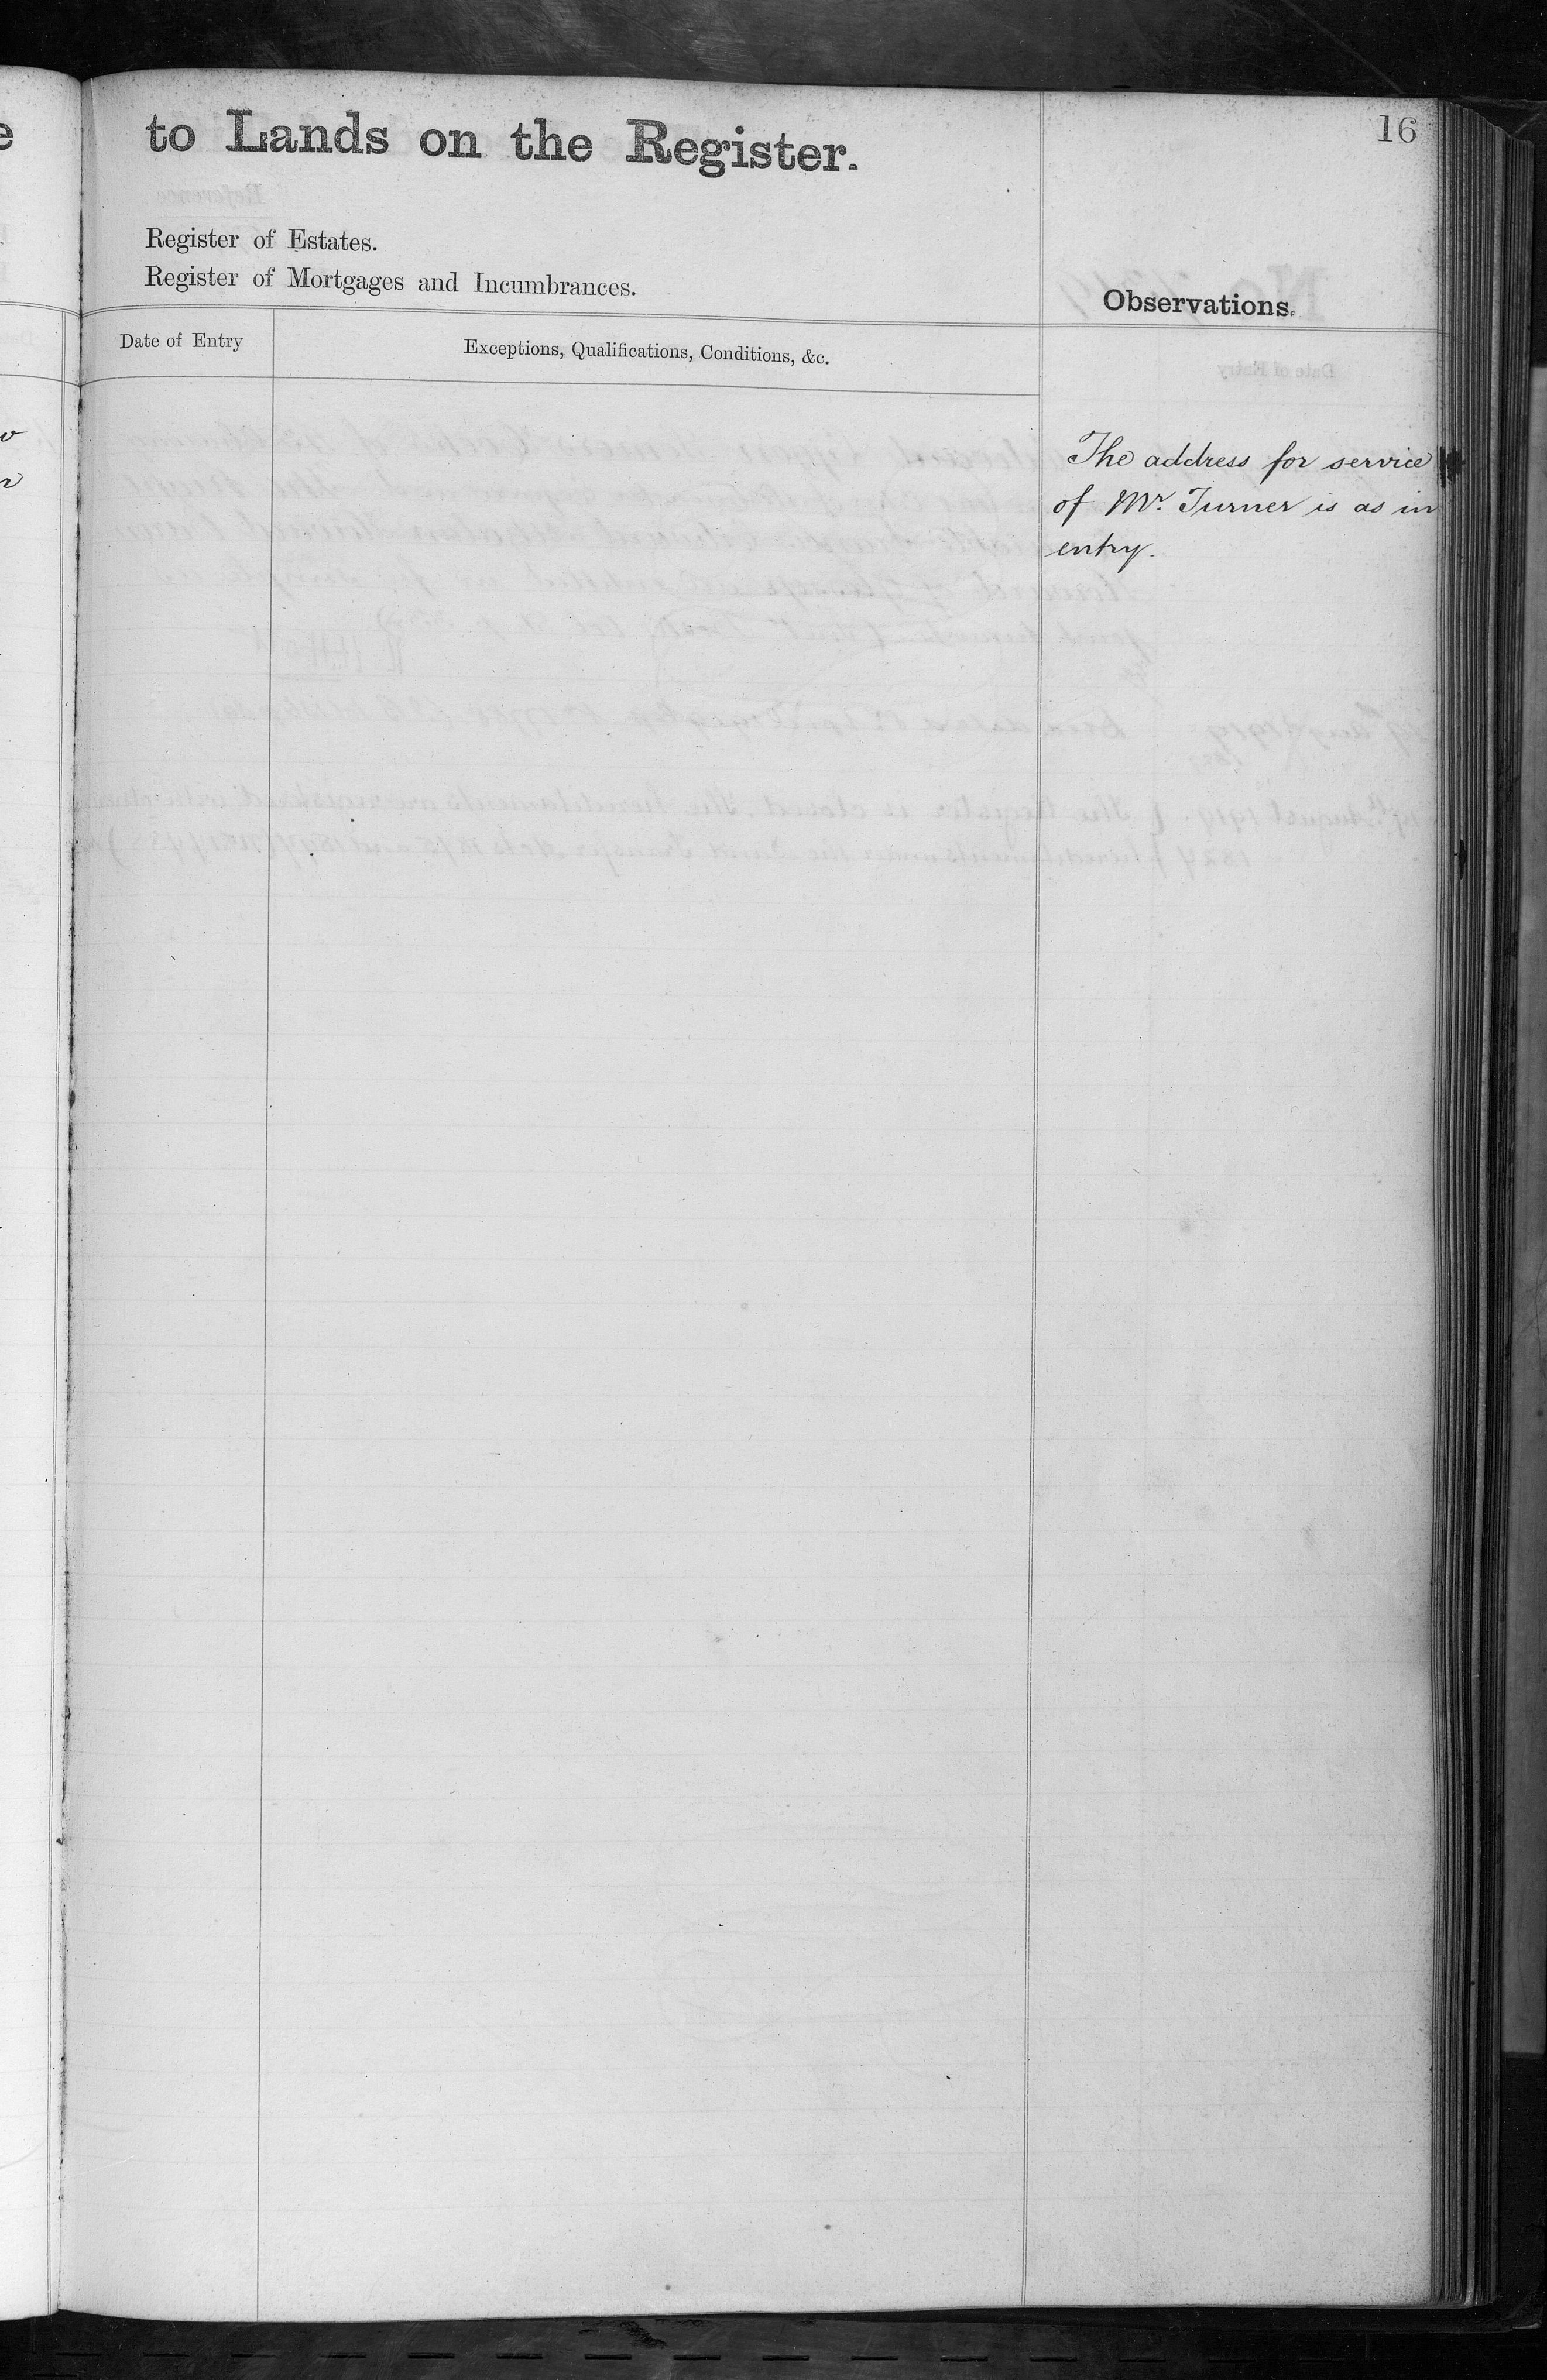 16
to Lands on the Register.
Register of Estates.
Register of Mortgages and Incumbrances.
Observations.
Date of Entry
Exceptions, Qualifications, Conditions, &c.
The address for service
of Mr. Turner is as in
entry.